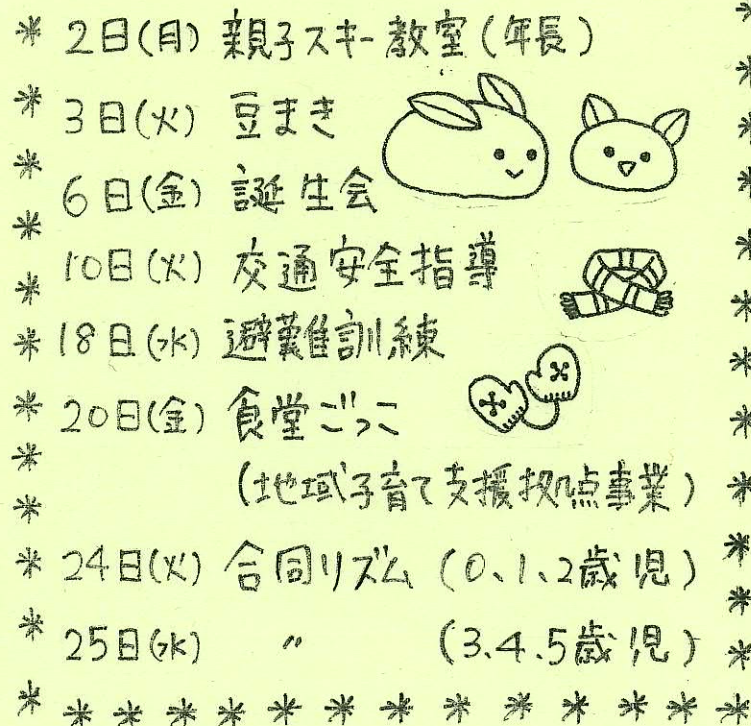 2日(月) 親子スキー教室(年長)
3日(火) 豆まき
6日(金) 誕生会
10日(火) 交通安全指導
18日(水) 避難訓練
20日(金) 食堂ごっこ
(地域子育て支援拠点事業)
24日(火) 合同リズム (0、1、2歳児)
25日(水) 〃 (3.4.5歳児)